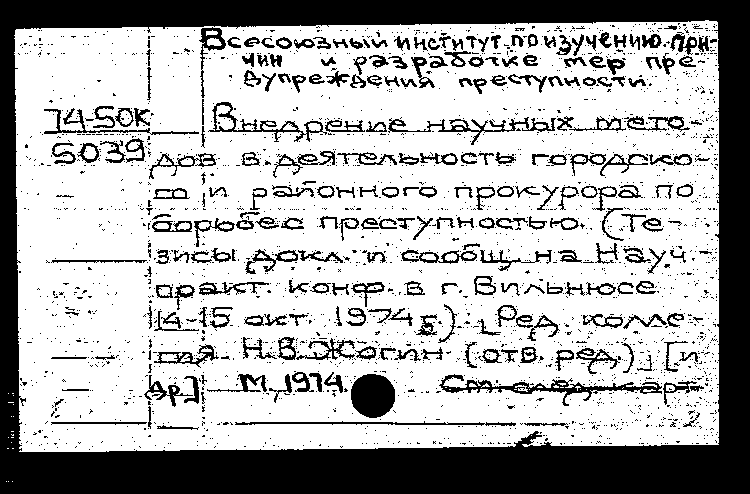 Всесоюзный институт по изучению при-
чин и разработке мер пре-
дупреждения преступности.
74-50К
5039
Внедрение научных мето-
дов в деятельность городско-
го и районного прокурора по
борьбе с преступностью. (Те-
зисы докл. и сообщ. на Науч.-
практ. конф. в г. Вильнюсе
14-15 окт. 1974 г.) Ред. колле-
гия Н.В. Жогин (отв. ред.) [и
др.] М., 1974.
См. след. карт.